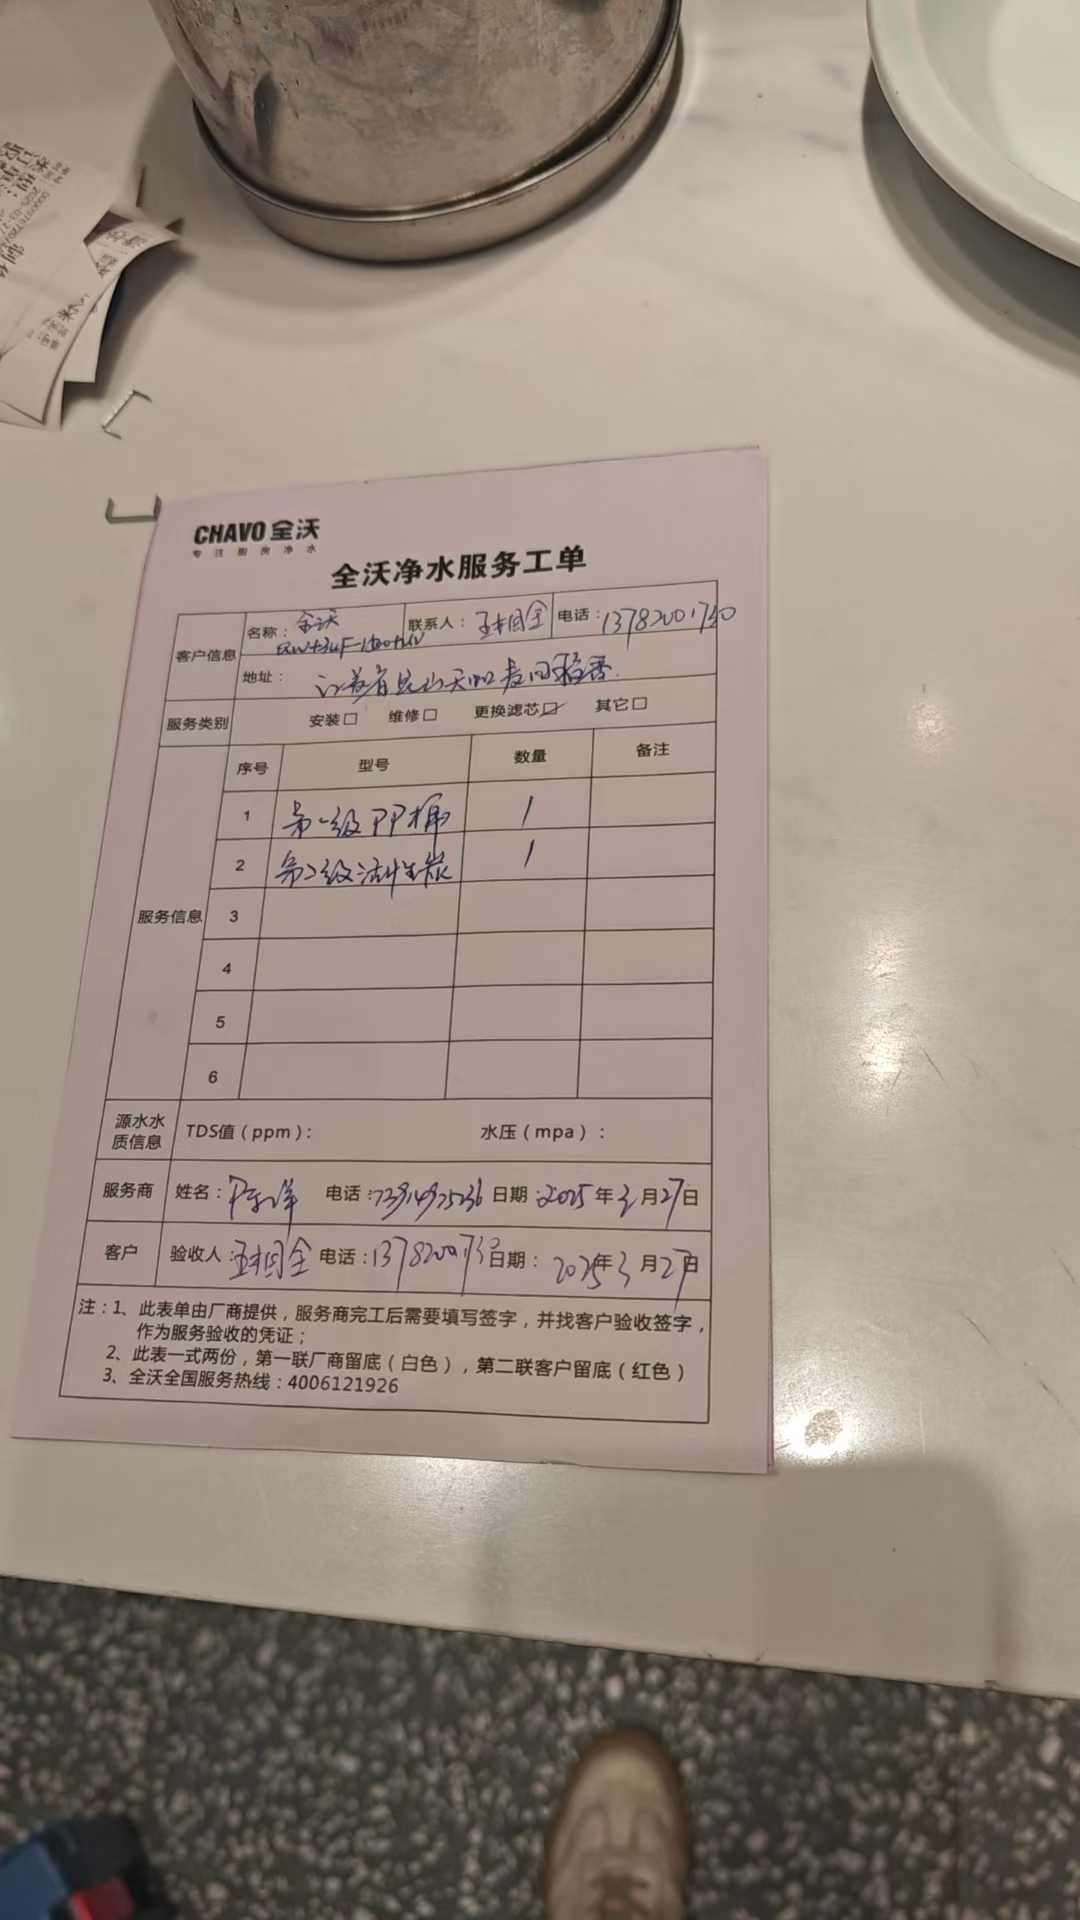 CHAVO 全沃
专注厨房净水
全沃净水服务工单
客户信息 名称：全沃 联系人： 电话：13782001730
地址：江苏省昆山天虹麦田稻香
服务类别 安装□ 维修□ 更换滤芯☑ 其它□
服务信息 序号 型号 数量 备注
1 第一级PP棉 1
2 第2级活性炭 1
3
4
5
6
源水水质信息 TDS值（ppm）： 水压（mpa）：
服务商 姓名： 电话： 日期：2025年3月27日
客户 验收人： 电话：13782001730 日期：2025年3月27日
注：1、此表单由厂商提供，服务商完工后需要填写签字，并找客户验收签字，
作为服务验收的凭证；
2、此表一式两份，第一联厂商留底（白色），第二联客户留底（红色）
3、全沃全国服务热线：4006121926